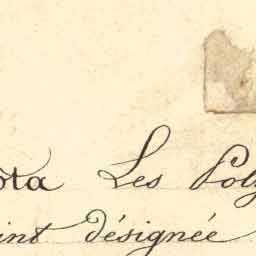 ota Les Poly
int désignée